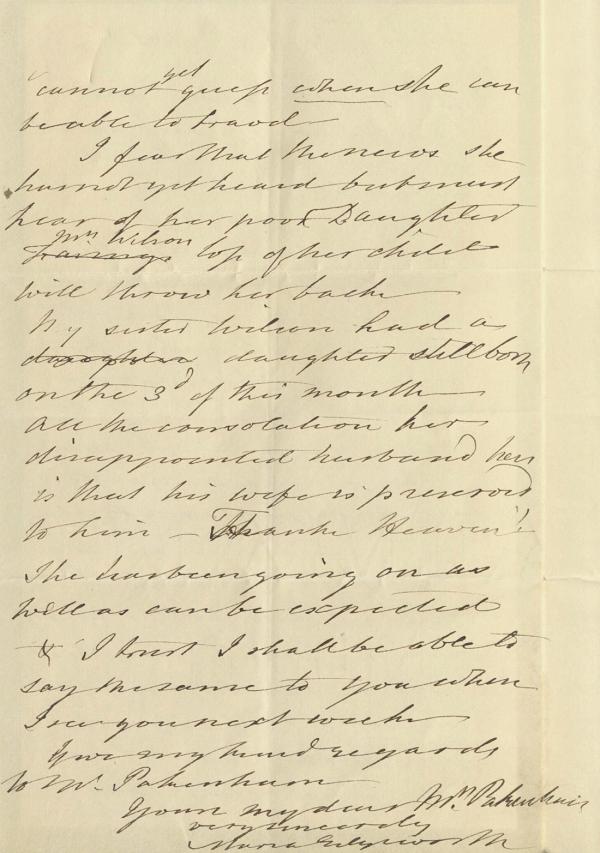 yet
cannot guess when she can
be able to travel
I fear that the news she
has not yet heard but must
hear of her poor Daughter
Mrs Wilson
loss of her child
will throw her back
My sister Wilson had a
daughter daughter still born
on the 3d of this month
All the consolation her
disappointed husband has
is that his wife is preserved
to him – Thank Heaven!
She has been going on as
well as can be expected
& I trust I shall be able to
say the same to you when
I see you next week
Give my kind regards
to Mr. Pakenham
Yours my dear Mrs. Pakenham
very sincerely
Maria Edgeworth